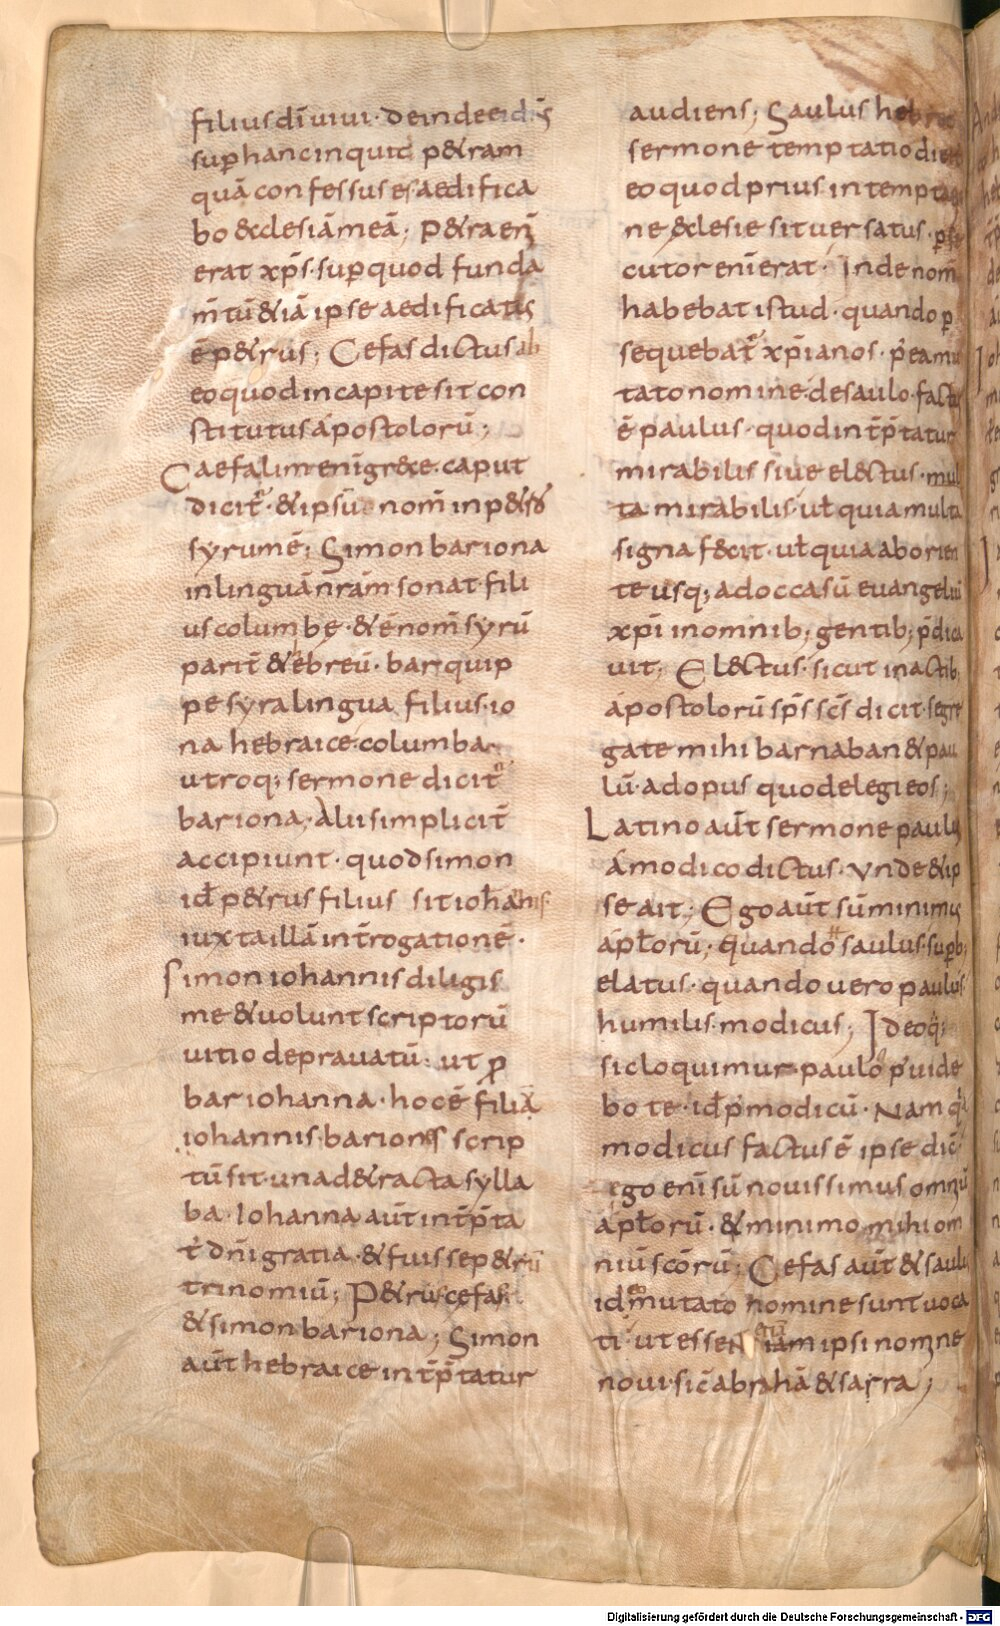 filius dī uiui · deinde eid dn̄s
sup̄ hanc inquit p&ram
quā confessus es aedifica
bo &cclesiā meā ; P&ra eni͂
erat xp̄s · sup̄ quod funda
m̄tū &iā ipse aedificatus
ē p&rus ; Cefas dictus ab
eo quod in capite sit con
stitutus apostolorū ;
Caefalim enī gr&ce · caput
dicit᷑ · & ipsū nom̄ in p&ro
syrum ē ; Simon bariona
in linguā nr̄am sonat · fili
us columbę · & ē nom̄ syrū
parit̄ & ebreū · bar quip
pe syra lingua filius · io
na hebraice columba ·
utroq; sermone dicit᷑
bariona · Alii simplicit̄
accipiunt · quod simon
id ē p&rus filius sit iohannis
iuxta illā int̄rogationē ·
Simon iohannis diligis
me & uolunt scriptorū
uitio deprauatū · ut ꝑ
bar iohanna · hoc ē filia
iohannis · bariona scrip
tū sit · una d&racta sylla
ba · Iohanna aūt int̄p̄ta
t̄ dn̄i gratia · & fuisse p&rū
trinomiū ; P&rus cefas
& simon bariona ; Simon
aūt hebraice int̄p̄tatur
audiens ; Saulus hebraeo
sermone temptatio dicit᷑
eo quod prius in temptatio
ne &clesie sit uersatus · ꝑse
cutor eni erat · Inde nom̄
habebat istud · quando ꝑ
sequebat᷑ xp̄ianos · p̄ea mu
tato nomine de saulo · factus
ē paulus · quod int̄p̄tatur
mirabilis siue el&ctus · mul
ta mirabilis · uł quia multa
signa f&cit · uł quia ab orien
te usq; ad occasū euangeliū
xp̄i in omnib; gentib; p̄dica
uit ; El&ctus · sicut in actib;
apostolorū sp̄s sc̄s dicit · segre
gate mihi barnaban & pau
lū · ad opus quod elegi eos ;
Latino aūt sermone paulus
a modico dictus · Vnde & ip
se ait ; Ego aūt sū minimus
apłorū · quando saulus · sup̄b;
elatus · quando uero paulus
humilis · modicus ; Ideoq;
sic loquimur paulo p̄ uide
bo te · id ē p̄ modicū · Nam q̄a
modicus factus ē ipse dic̄
ego enī sū nouissimus omniū
apłorū · & minimo mihi om
niū sc̄orū ; Cefas aūt & saulus
id̄ mutato nomine sunt uoca
ti · ut essent etiam ipsi nomine
noui · sic̄ abrahā & sarra ;
Digitalisierung gefördert durch die Deutsche Forschungsgemeinschaft - DFG